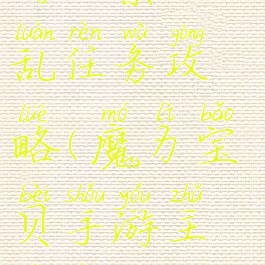 luàn rèn wù gōng
乱任务攻
lüè mó lì bǎo
略(魔力宝
bèi shǒu yóu zhǔ
贝手游主